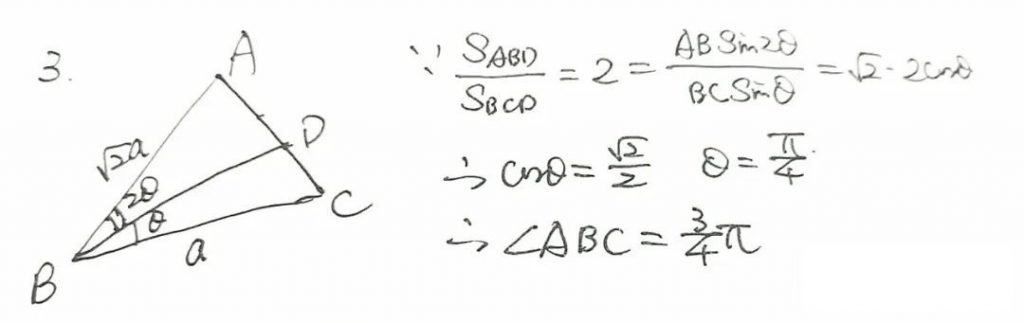 3.
A
D
C
B
√2a
2θ
θ
a
∵ S_ABD / S_BCD = 2 = AB Sin2θ / BC Sinθ = √2 · 2cosθ
∴ cosθ = √2/2  θ = π/4.
∴ ∠ABC = 3/4 π